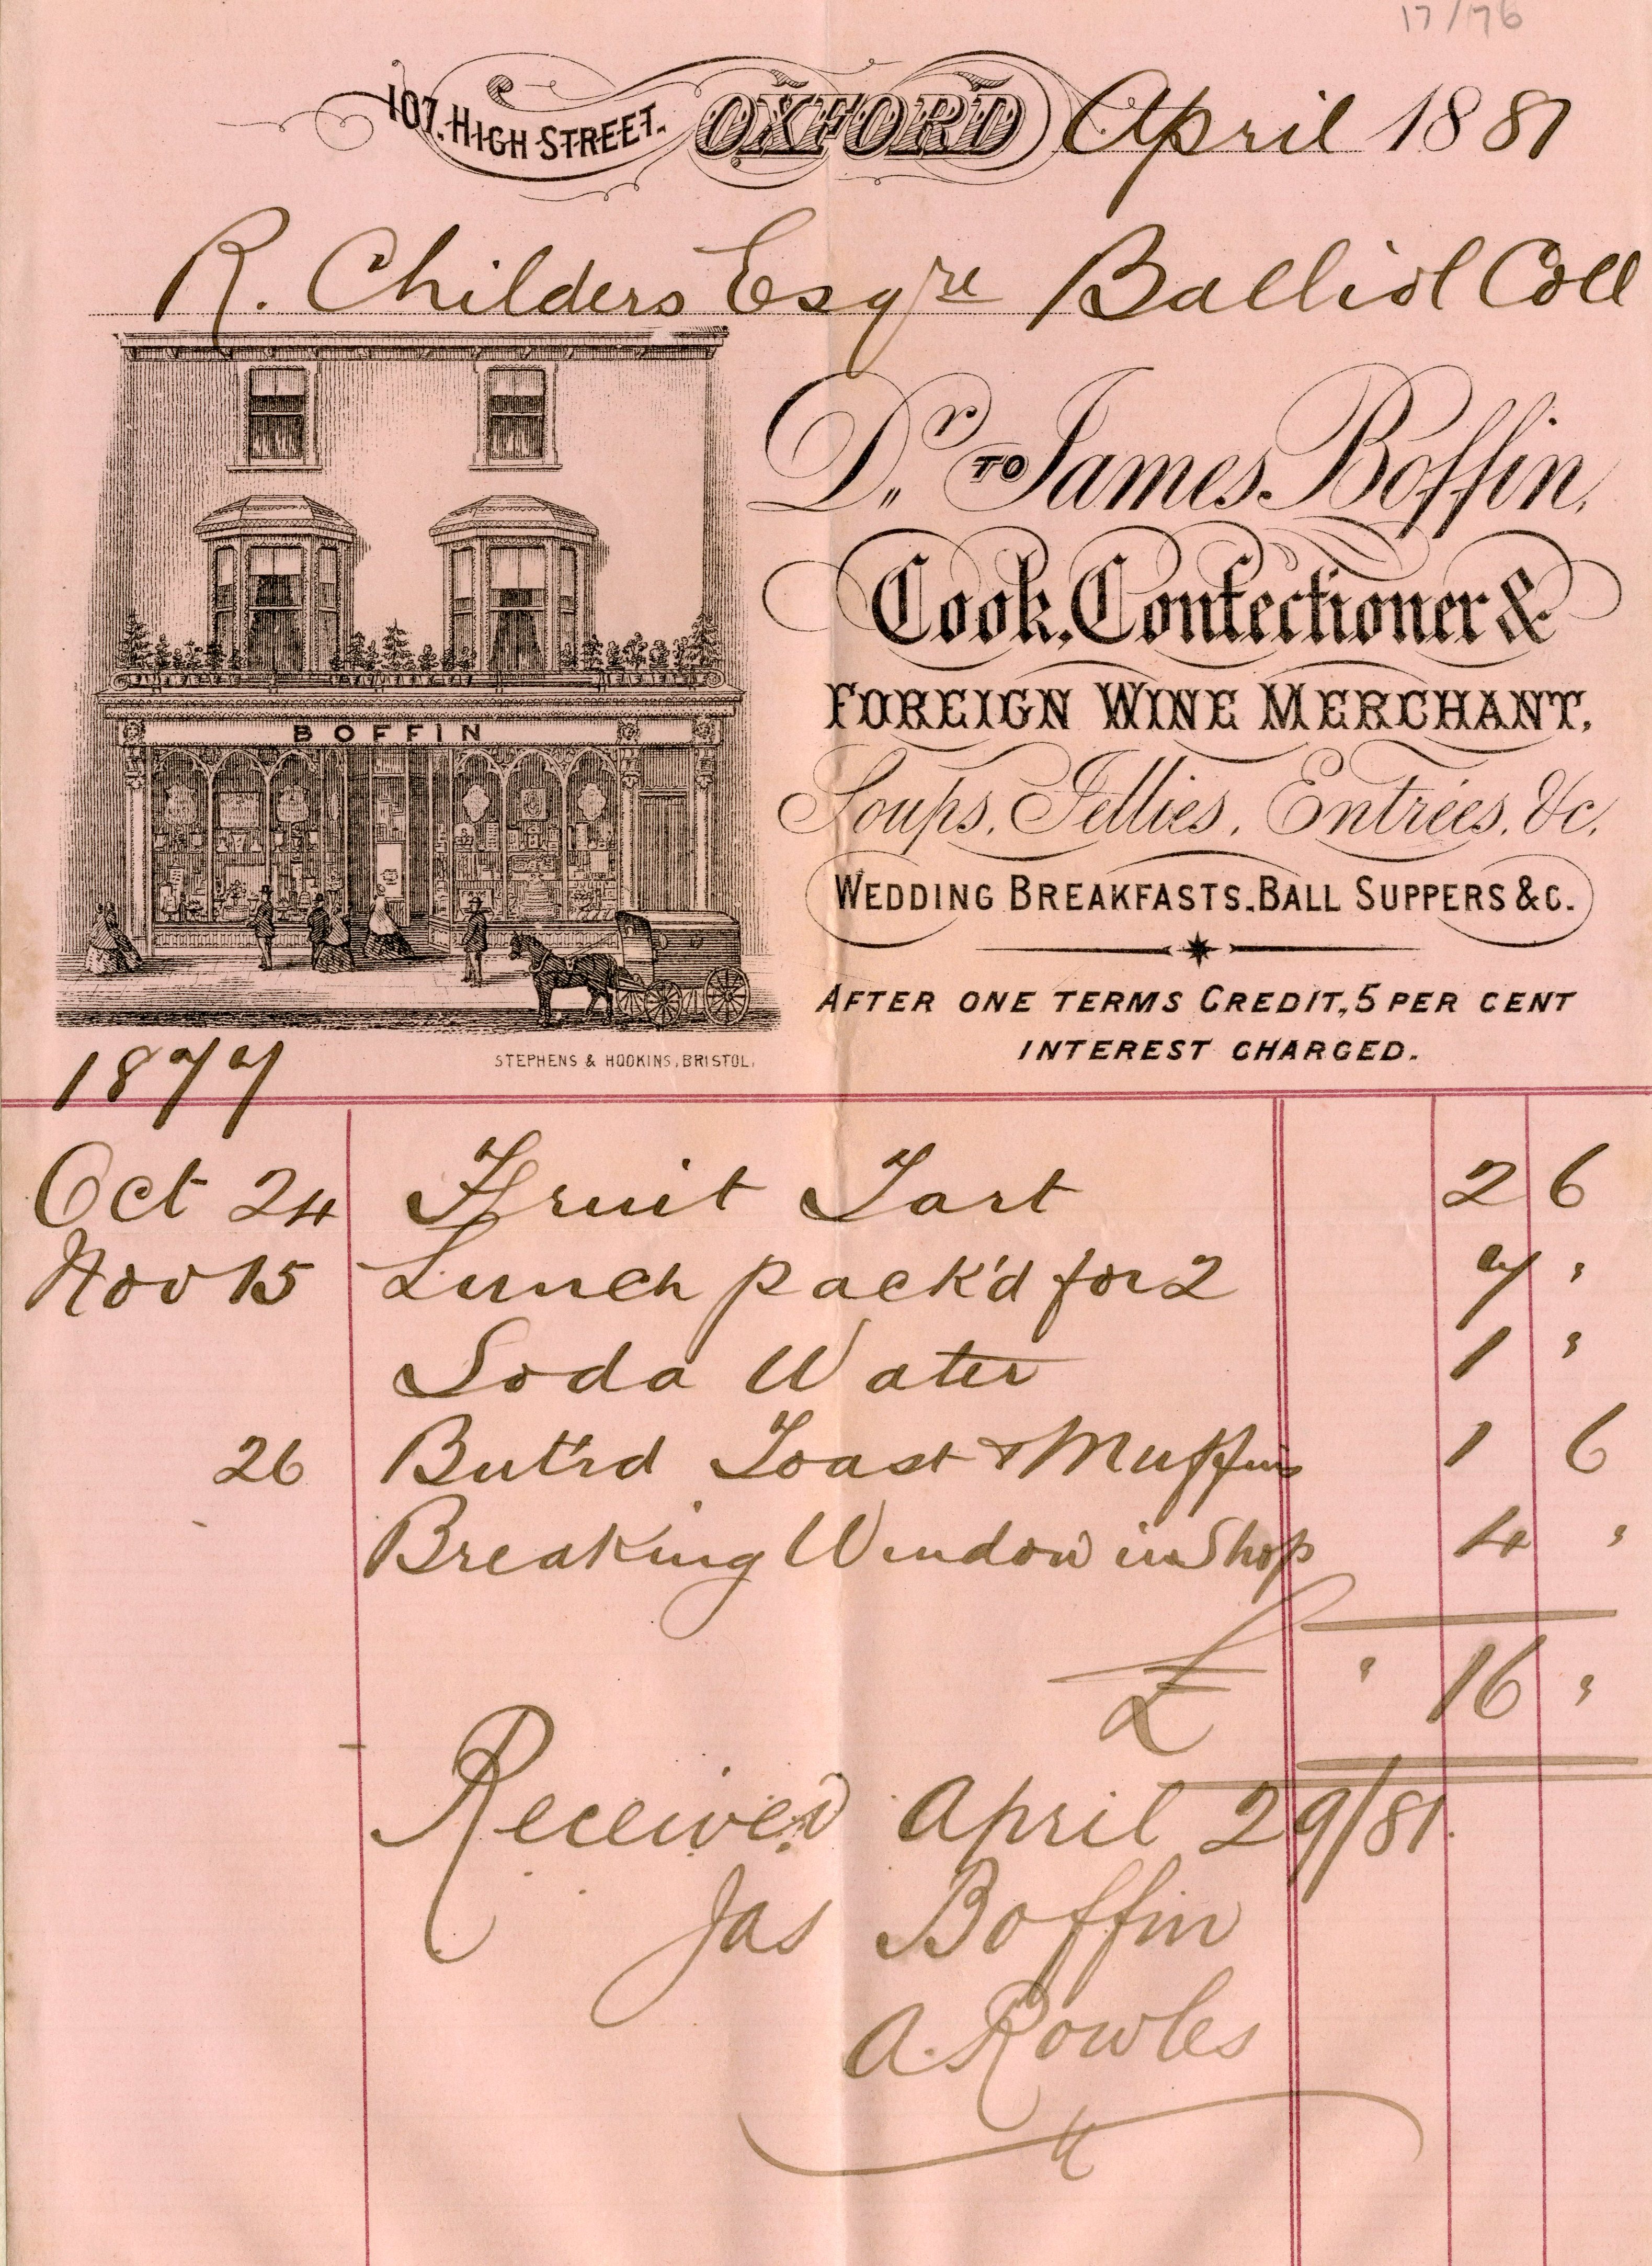 17/76
107. HIGH STREET. OXFORD April 1881
R. Childers Esqre Balliol Coll
Dr. TO James Boffin,
Cook, Confectioner &
FOREIGN WINE MERCHANT,
Soups, Jellies, Entrées, &c.
WEDDING BREAKFASTS. BALL SUPPERS &C.
AFTER ONE TERMS CREDIT, 5 PER CENT
INTEREST CHARGED.
BOFFIN
STEPHENS & HOOKINS, BRISTOL.
1877
Oct 24 Fruit Tart 2 6
Nov 15 Lunch pack'd for 2 7 "
Soda Water 1 "
26 But'rd Toast & Muffins 1 6
Breaking Window in Shop 4 "
£ " 16 "
Received April 29/81
Jas Boffin
A. Rowles